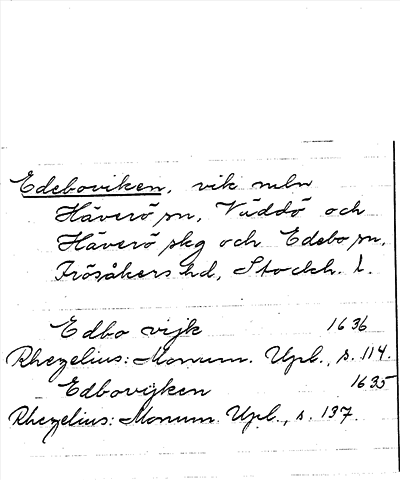 Edeboviken, vik mln
Häverö sn, Väddö och
Häverö skg och Edebo sn,
Frösåkers hd, Stockh. l.
Edbo vijk 1636
Rhezelius: Monum. Upl., s. 114.
Edbovijken 1635
Rhezelius: Monum. Upl., s. 137.